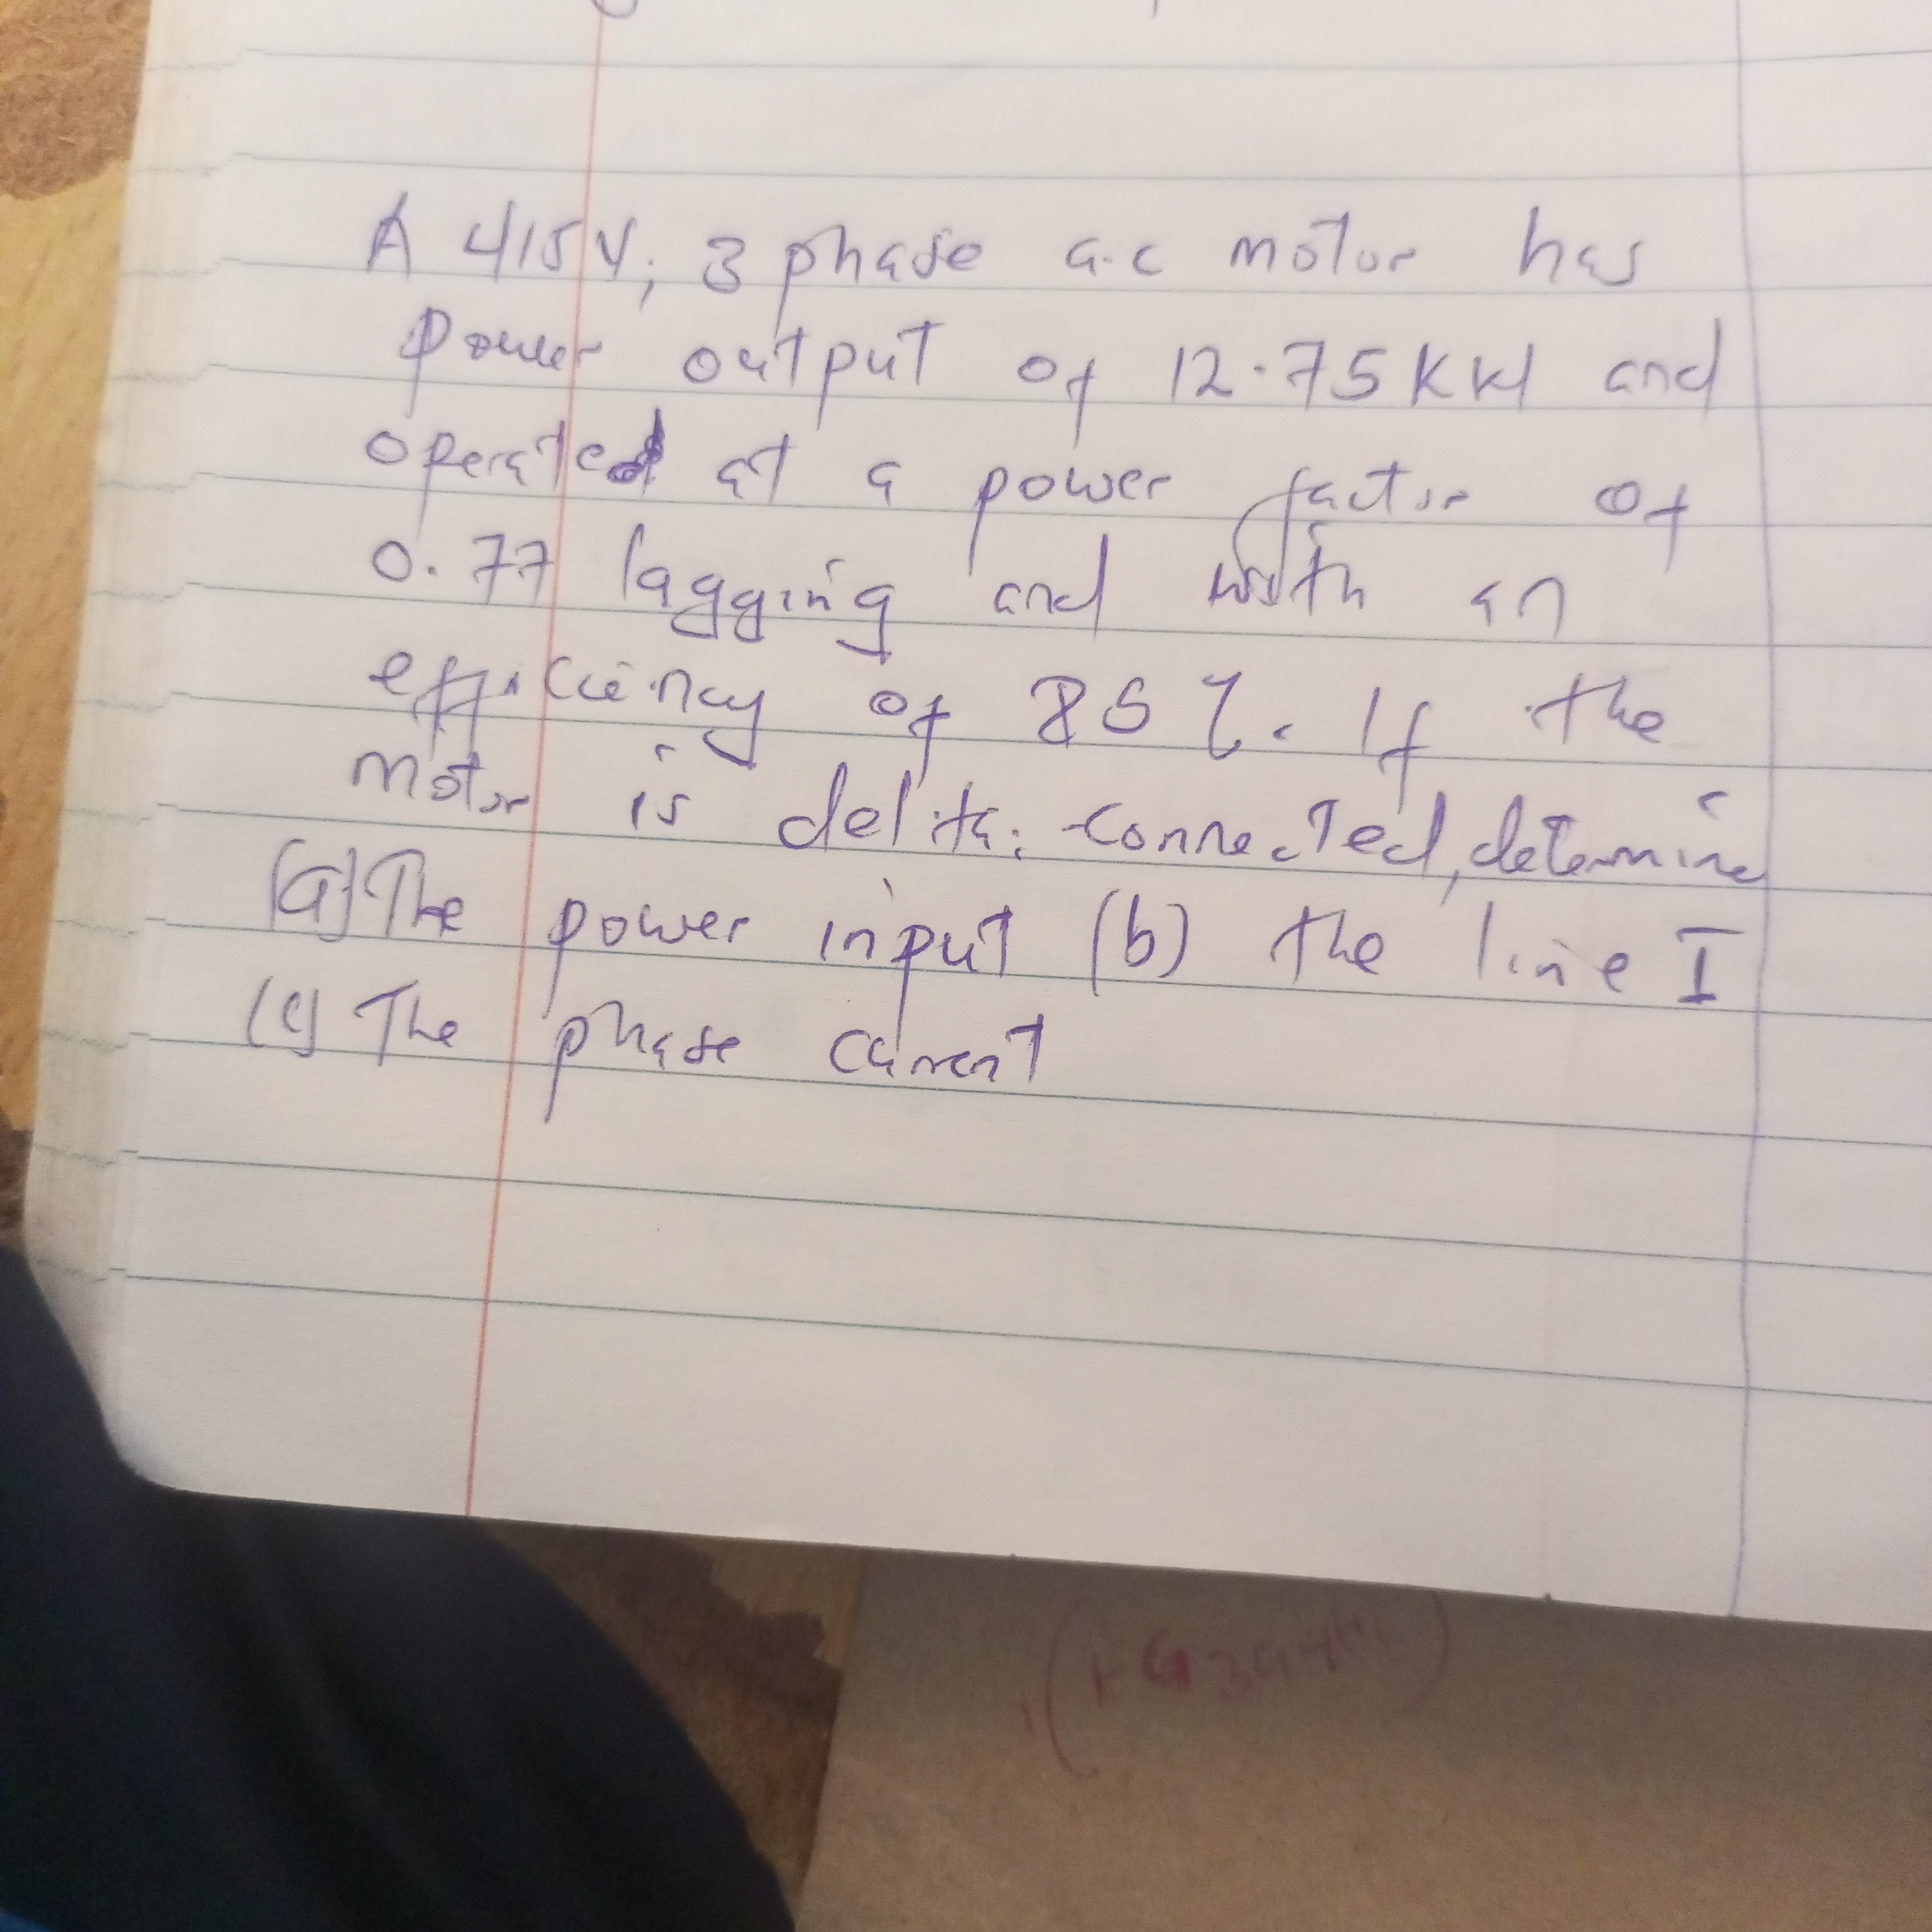 A 415V, 3 phase a.c motor has
power output of 12.75KW and
operated at a power factor of
0.77 lagging and with an
efficiency of 85%. If the
motor is delta-connected, determine
(a) The power input (b) the line I
(c) The phase current